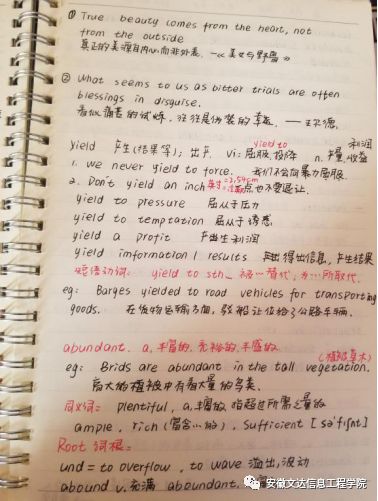 ① True beauty comes from the heart, not
from the outside
真正的美源自内心而非外表. —《美女与野兽》
② What seems to us as bitter trials are often
blessings in disguise.
看似痛苦的试炼, 往往是伪装的幸福. — 王尔德.
yield to 利润
yield 产生(结果等); 出产. vi: 屈服, 投降 n. 产量, 收益
1. we never yield to force. 我们不会向暴力屈服.
2. Don't yield an inch 英寸=2.54cm 点也不要退让.
yield to pressure 屈从于压力
yield to temptation 屈从于诱惑
yield a profit 产出生利润
yield information / results 得出信息, 产生结果
短语动词: yield to sth 被…替代, 为…所取代.
eg: Barges yielded to road vehicles for transporting
goods. 在货物运输方面, 驳船让位给了公路车辆.
abundant. a. 丰富的, 充裕的, 丰盛的 (植被草木)
eg: Brids are abundant in the tall vegetation.
高大的植被中有着大量的鸟类.
同义词: plentiful, a. 丰富的, 指超过所需之量的
ample, rich (富含…的), sufficient [sə'fɪʃnt]
Root 词根:
und = to overflow, to wave 溢出, 波动
abound v. 充满 aboundant.
安徽文达信息工程学院